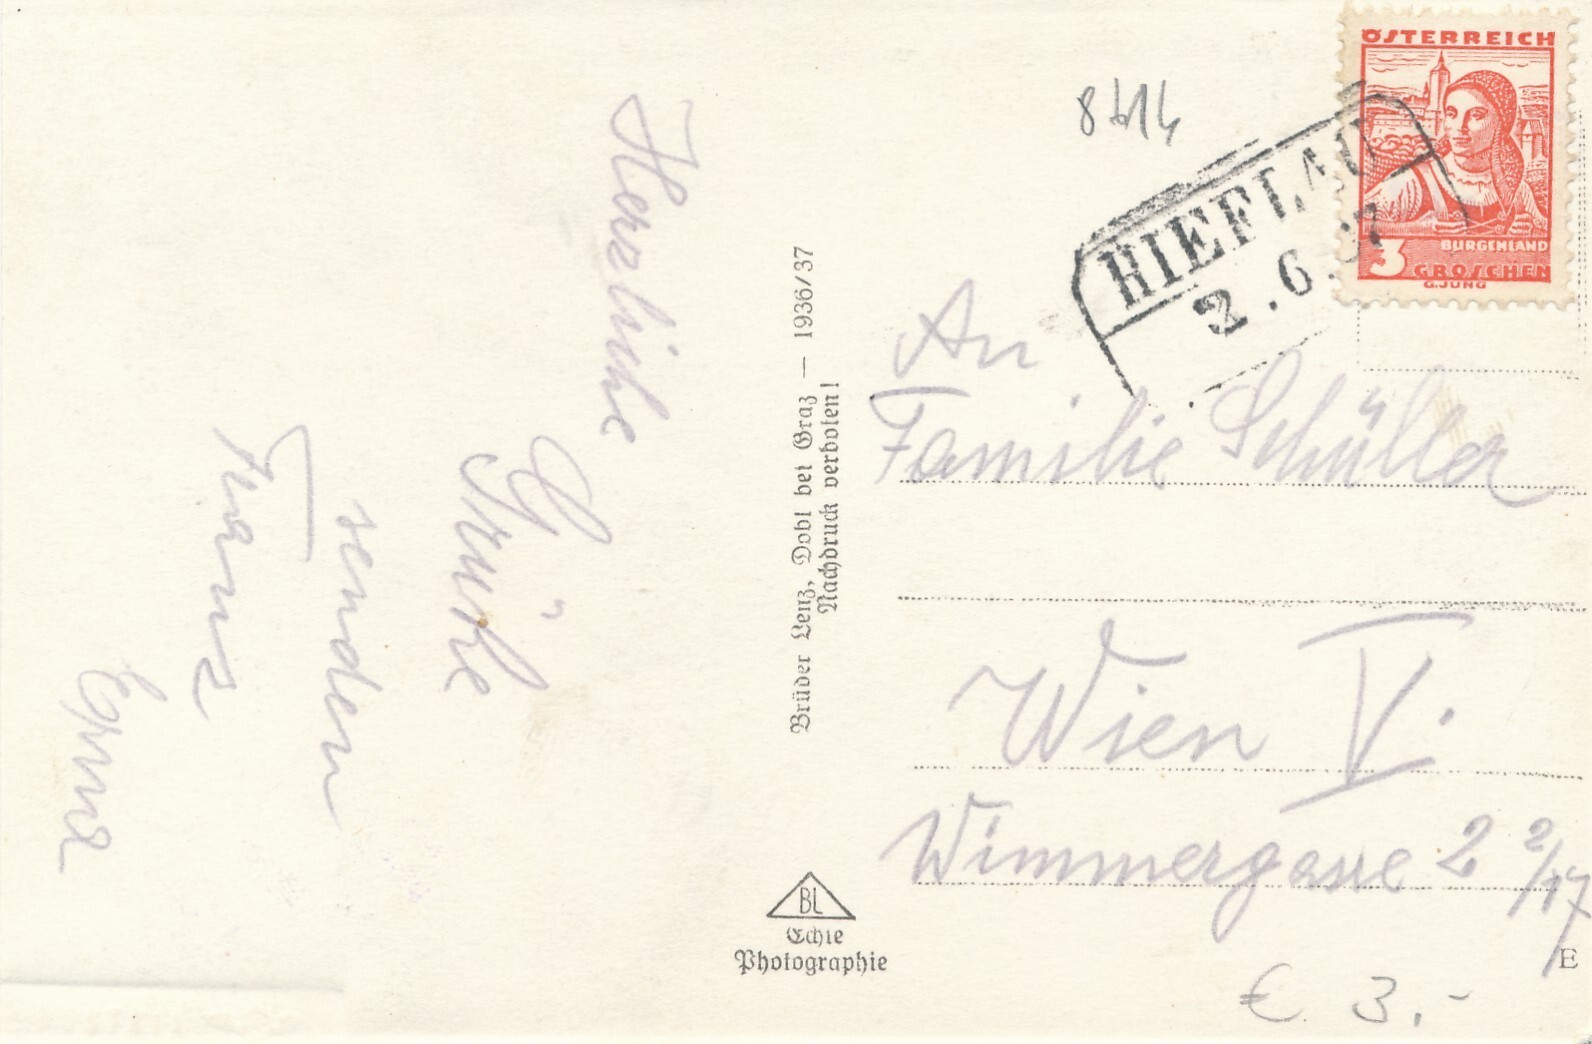 Herzliche
Grüße
senden
Franz
Erna
Brüder Lenz, Dobl bei Graz — 1936/37
Nachdruck verboten!
BL
Echte
Photographie
8614
ÖSTERREICH
BURGENLAND
3 GROSCHEN
G.JUNG
HIEFLAU
2.6.37
An
Familie Schüller
Wien V.
Wimmergasse 2 2/17
E
€ 3.-